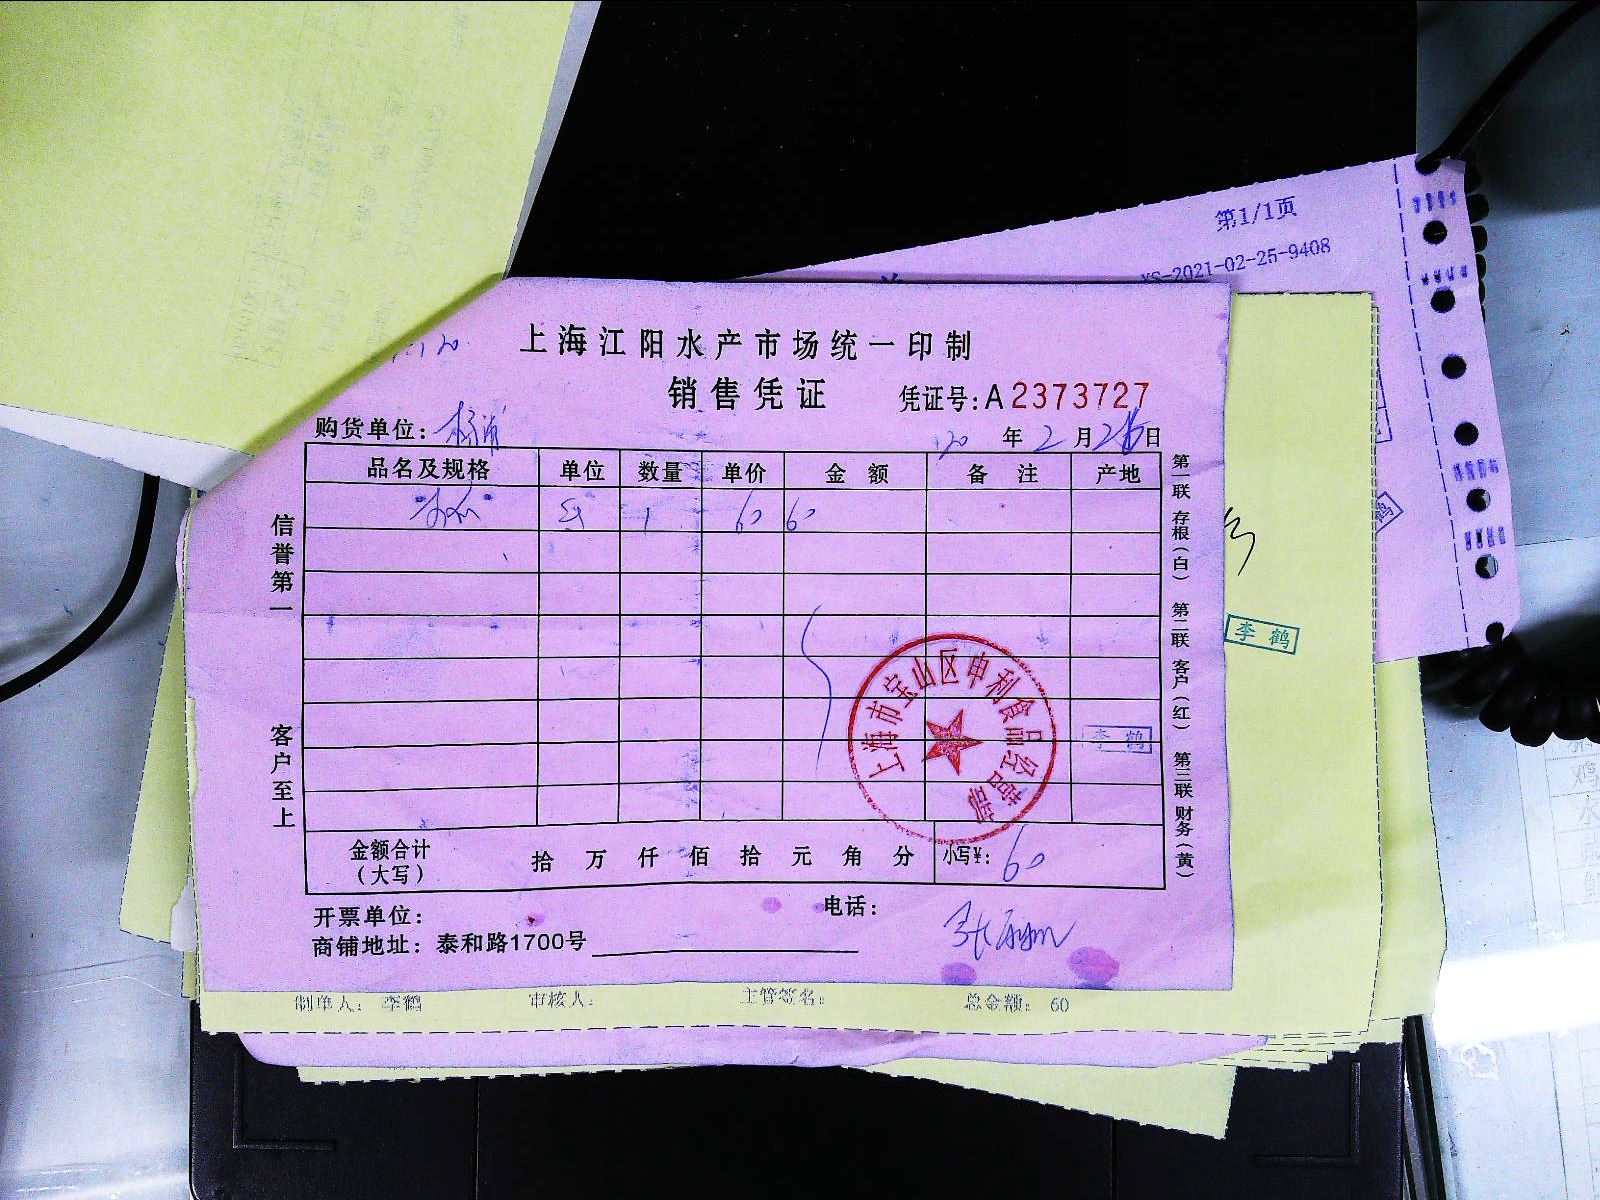 第1/1页
XS-2021-02-25-9408
上海江阳水产市场统一印制
销售凭证
凭证号:A 2373727
购货单位:
年 2 月 日
品名及规格 单位 数量 单价 金额 备注 产地
1 60 60
信誉第一
客户至上
第一联 存根(白) 第二联 客户(红) 第三联 财务(黄)
李鹤
上海市宝山区申利食品经营部
李鹤
金额合计(大写) 拾 万 仟 佰 拾 元 角 分 小写¥: 60
开票单位: 电话:
商铺地址: 泰和路1700号
制单人: 李鹤 审核人: 主管签名: 总金额: 60